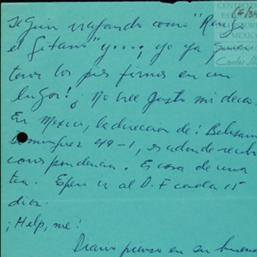 Seguir viajando como "Rene
el Gitano" y.... yo ya
tener los pies firmes en un
lugar! ¿No cree justo mi deseo
En Mexico, la direccion de: Belisario
Dominguez 49-1, es adonde recibo
correspondencia. Es casa de una
tia. Espero ir al D.F cada 15
dias.
¡Help, me!
Diario pienso en su buena